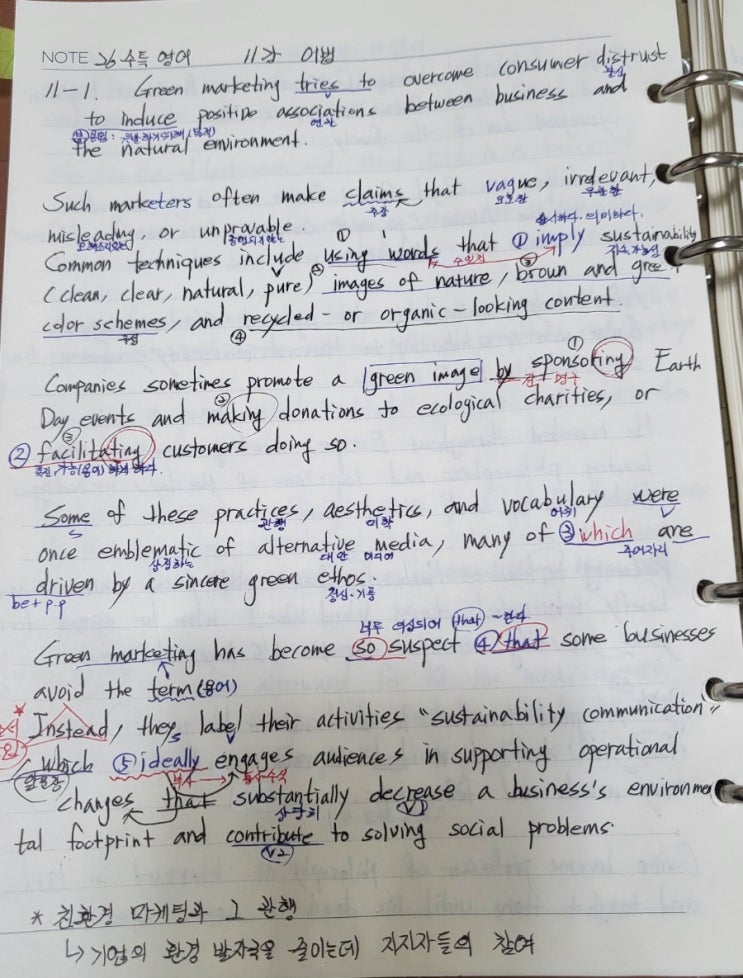 NOTE 26 수특 영어 11강 어법
11-1. Green marketing tries to overcome consumer distrust
불신
to induce positive associations between business and
연상
the natural environment.
Such marketers often make claims that vague, irrelevant,
주장 모호한 무관한
misleading, or unprovable.
오해소지있는 증명되지않는
암시하다. 의미하다.
Common techniques include ① using words that ① imply sustainability
수식 지속가능성
(clean, clear, natural, pure) ② images of nature, ③ brown and green
color schemes, and recycled- or organic-looking content.
구성 ④
①
Companies sometimes promote a green image by sponsoring Earth
Day events and ② making donations to ecological charities, or
② ③ facilitating customers doing so.
Some of these practices, aesthetics, and vocabulary were
관행 미학 어휘
once emblematic of alternative media, many of ③ which are
상징하는 대안 미디어 주어자리
driven by a sincere green ethos.
be+p.p 정신·기풍
너무 의심되어 that ~한다
Green marketing has become so suspect ④ that some businesses
avoid the term (용어)
Instead, they label their activities "sustainability communication"
which ⑤ ideally engages audiences in supporting operational
부사 동사수식
changes that substantially decrease a business's environmen
상당히 V1
tal footprint and contribute to solving social problems.
V2
* 친환경 마케팅과 그 관행
↳ 기업의 환경 발자국을 줄이는데 지지자들의 참여